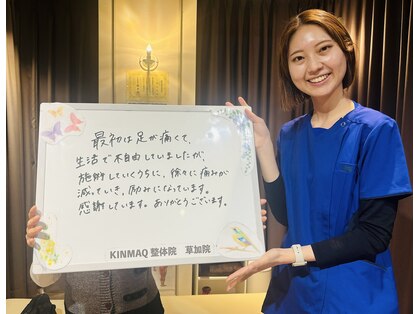 最初は足が痛くて、
生活で不自由していましたが、
施術していくうちに、徐々に痛みが
減っていき、励みになっています。
感謝しています。ありがとうございます。
KINMAQ 整体院 草加院